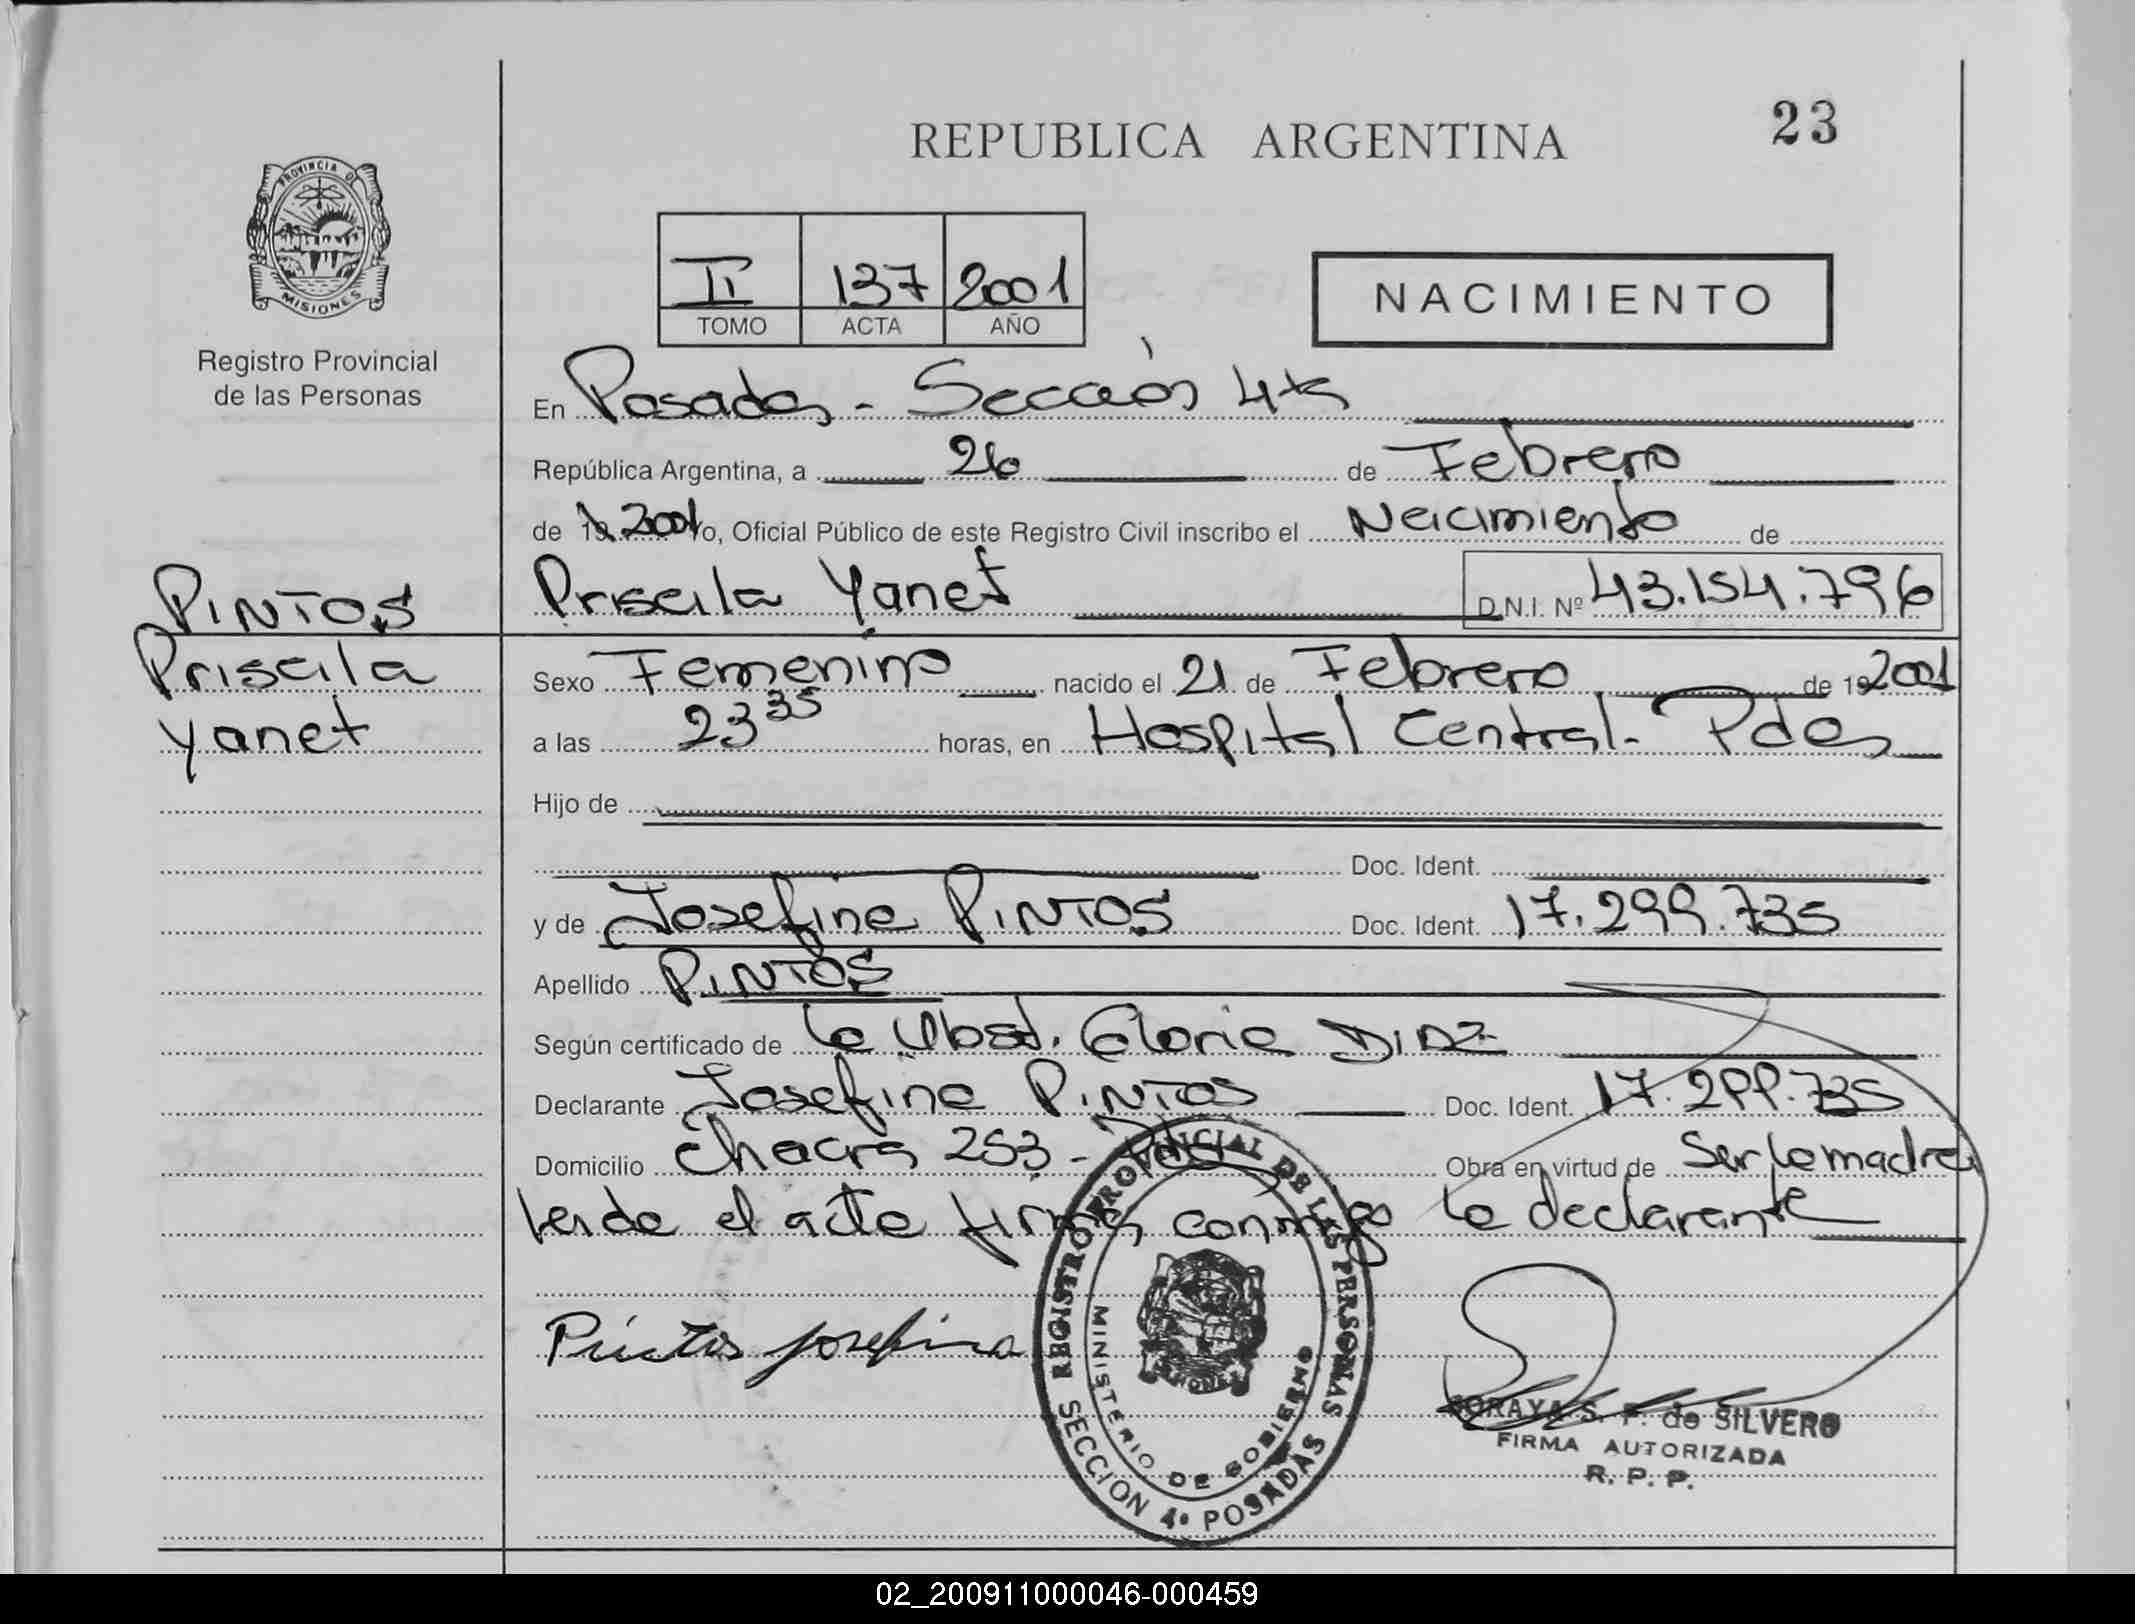 REPUBLICA ARGENTINA
23
PROVINCIA DE
MISIONES
Registro Provincial
de las Personas
II 137 2001
TOMO ACTA AÑO
NACIMIENTO
En Posadas - Sección 4ta
República Argentina, a 26 de Febrero
de 19 2001 yo, Oficial Público de este Registro Civil inscribo el Nacimiento de
Priscila Yanet D.N.I. Nº 43.154.796
PINTOS
Priscila
Yanet
Sexo Femenino nacido el 21 de Febrero de 19 2001
a las 23 35 horas, en Hospital Central - Pdas
Hijo de
Doc. Ident.
y de Josefina PINTOS Doc. Ident. 17.299.735
Apellido PINTOS
Según certificado de la Obst. Gloria DIAZ
Declarante Josefina PINTOS Doc. Ident. 17.299.735
Domicilio Chacra 253 - Pdas Obra en virtud de Ser la madre
Leída el acta firma conmigo la declarante
Pintos Josefina
REGISTRO PROVINCIAL DE LAS PERSONAS
MINISTERIO DE GOBIERNO
SECCION 4º POSADAS
SORAYA S. F. de SILVERO
FIRMA AUTORIZADA
R. P. P.
02_200911000046-000459